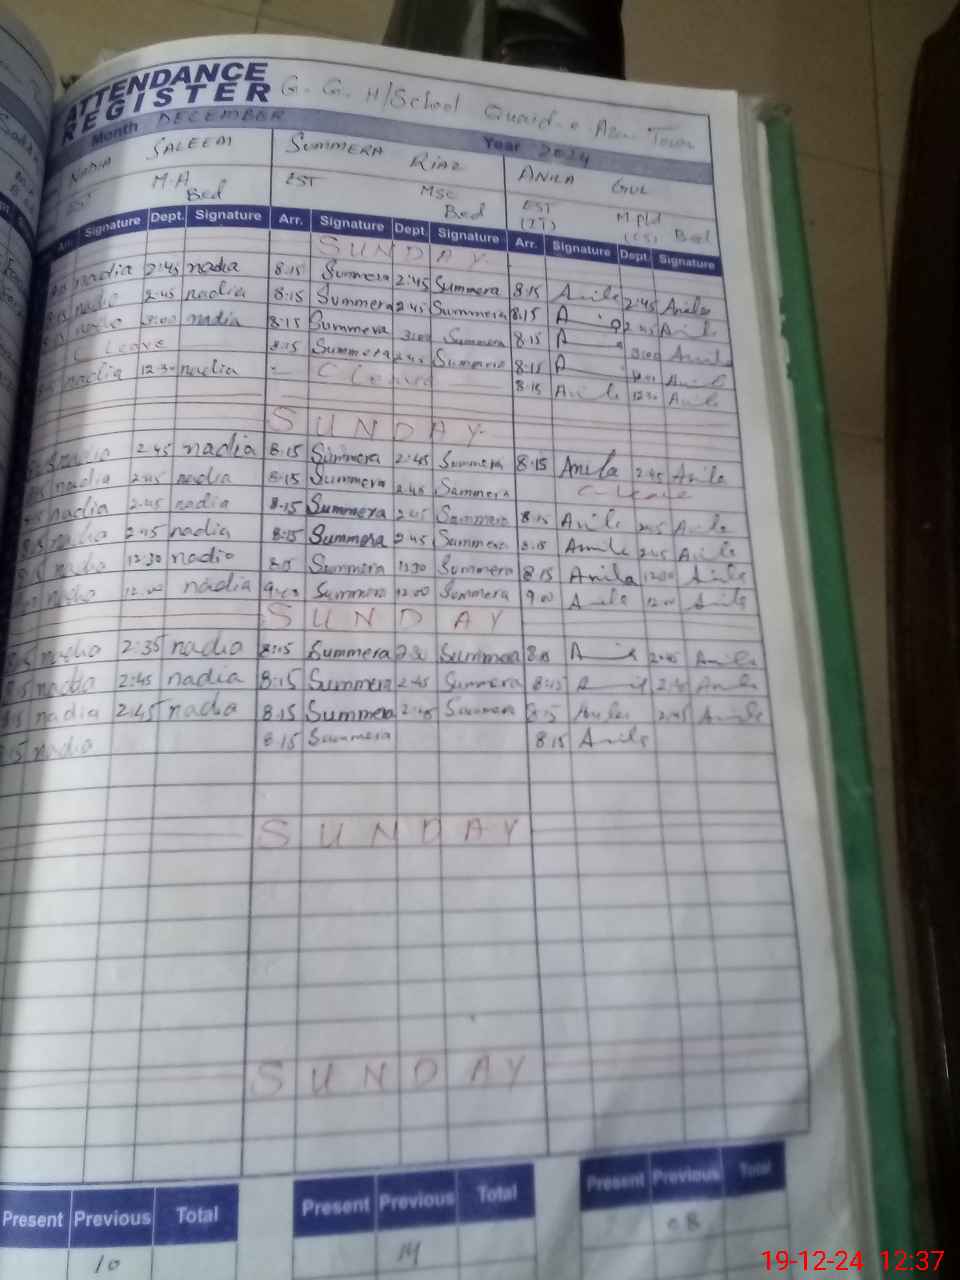 ATTENDANCE REGISTER G. G. H/School Quaid-e Azam Town
Month DECEMBER Year 2024
NADIA SALEEM SUMMERA RIAZ ANILA GUL
EST M.A Bed EST MSc Bed EST (IT) M.phil (CS) Bed
Arr. Signature Dept. Signature Arr. Signature Dept. Signature Arr. Signature Dept. Signature
SUNDAY
nadia 2:45 nadia 8:15 Summera 2:45 Summera 8:15 Anila 2:45 Anila
nadia 2:45 nadia 8:15 Summera 2:45 Summera 8:15 2:45
nadia 3:00 nadia 8:15 Summera 3:00 Summera 8:15 3:00 Anila
C Leave 8:15 Summera 2:45 Summera 8:15
nadia 12:30 nadia - C Leave 8:15 Anila 12:30 Anila
SUNDAY
nadia 2:45 nadia 8:15 Summera 2:45 Summera 8:15 Anila 2:45 Anila
nadia 2:45 nadia 8:15 Summera 2:45 Summera C-Leave
nadia 2:45 nadia 8:15 Summera 2:45 Summera 8:15 Anila 2:45 Anila
nadia 2:45 nadia 8:15 Summera 2:45 Summera 8:15 Anila 2:45 Anila
nadia 12:30 nadia 8:15 Summera 12:30 Summera 8:15 Anila 12:30 Anila
nadia 12:00 nadia 9:00 Summera 12:00 Summera 9:00 Anila 12:00 Anila
SUNDAY
nadia 2:35 nadia 8:15 Summera Summera 8:15 2:45 Anila
nadia 2:45 nadia 8:15 Summera 2:45 Summera 8:15 2:45 Anila
8:15 nadia 2:45 nadia 8:15 Summera 2:45 Summera 8:15 Anila 2:45 Anila
8:15 nadia 8:15 Summera 8:15 Anila
SUNDAY
SUNDAY
Present Previous Total Present Previous Total Present Previous Total
10 14 08
19-12-24 12:37